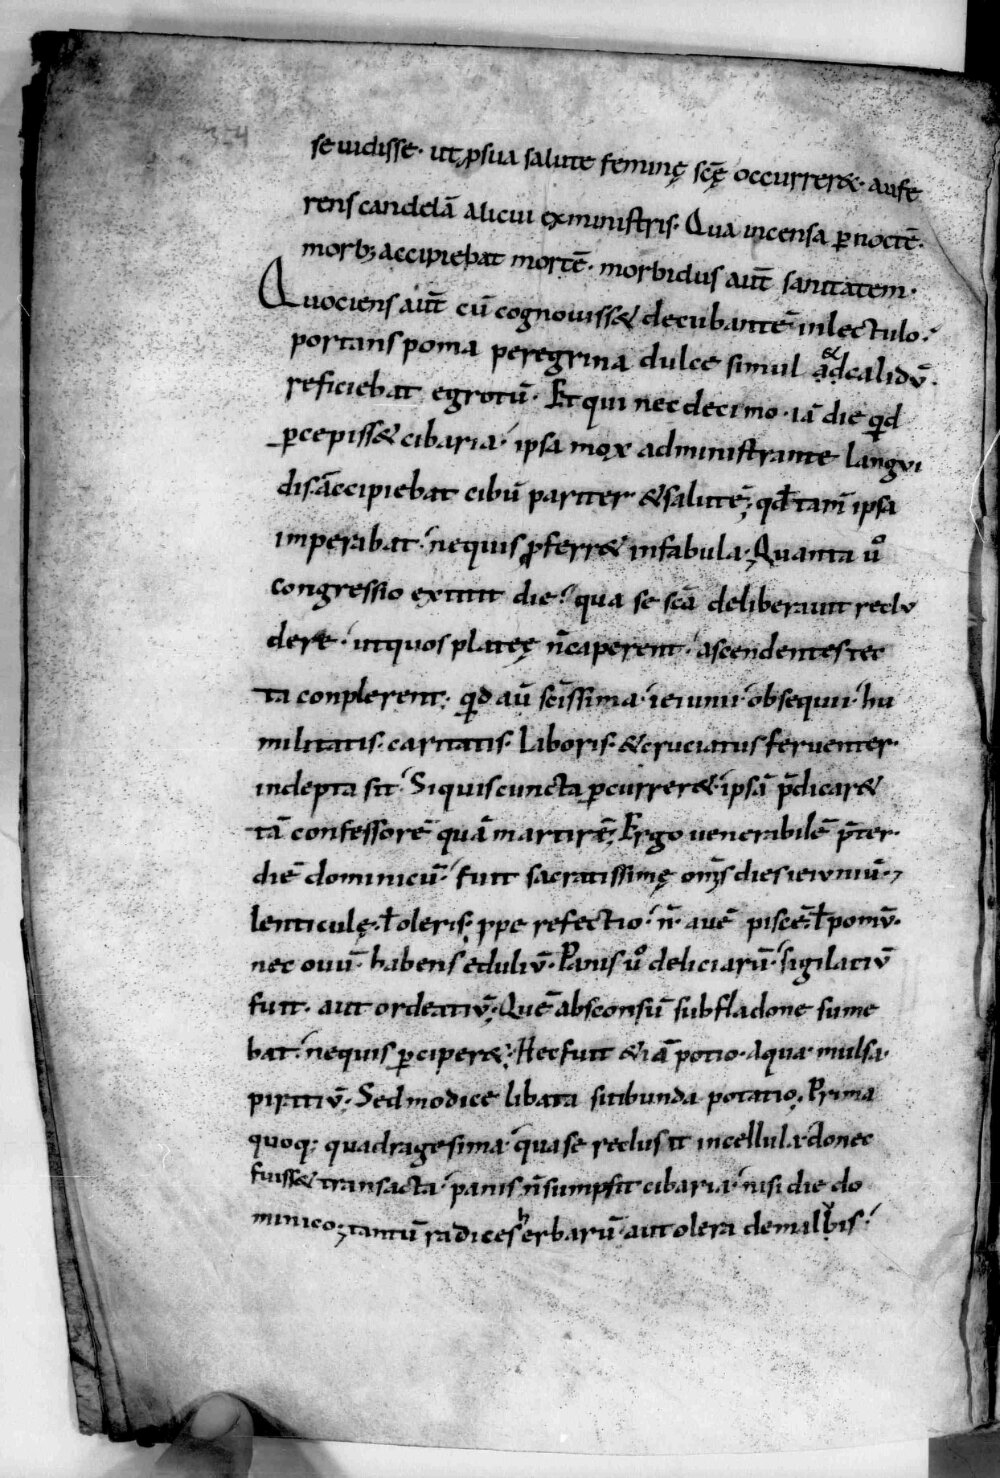 se uidisse· ut ꝓ sua salute feminę scę̄ occurrer&· aufe
rens candelā alicui ex ministris· Qua incensa ꝑ noctē·
morb; accipiebat mortē· morbidus aūt sanitatem·
Quociens aūt cū cognouiss& decubantē in lectulo·
portans poma peregrina dulce simul ad& calidū·
reficiebat egrotū· Et qui nec decimo· iā die qd̄
ꝑcepiss& cibaria· ipsa mox administrante langui
dis accipiebat cibū pariter & salutē; qd̄ tam̄ ipsa
imperabat· ne quis ꝓferr& in fabula; Quanta ů
congressio extitit die· qua se scā deliberauit reclu
dere· ut quos plateę n̄ caperent· ascendentes tec
ta conplerent· qd̄ aū sc̄issima· ieiunii· obsequii· hu
militatis· caritatis· Laboris· & cruciatus feruenter·
indepta sit· Si quis cuncta ꝑcurrer&· ipsā p̄dicar&
tā confessorē quā martirē; Ergo uenerabilē p̄ter·
diē dominicū· fuit sacratissimę om̄s dies ieiuniū·
lenticulę· ł oleris· ꝓpe refectio· n̄· auē piscē· ł pomū·
nec ouū· habens eduliū· Panis ů deliciarū· sigilatiū
fuit· aut ordeatiū; Quē absconsū sub fladone sume
bat· ne quis ꝑciper&; Hec fuit & iā potio· Aqua· mulsa·
piritiū· Sed modice libata sitibunda potatio; Prima
quoq; quadragesima· qua se reclusit in cellula· donec
fuiss& transacta· panis n̄ sumpsit cibaria· nisi die do
minico; tantū radices herbarū· aut olera de maluis·